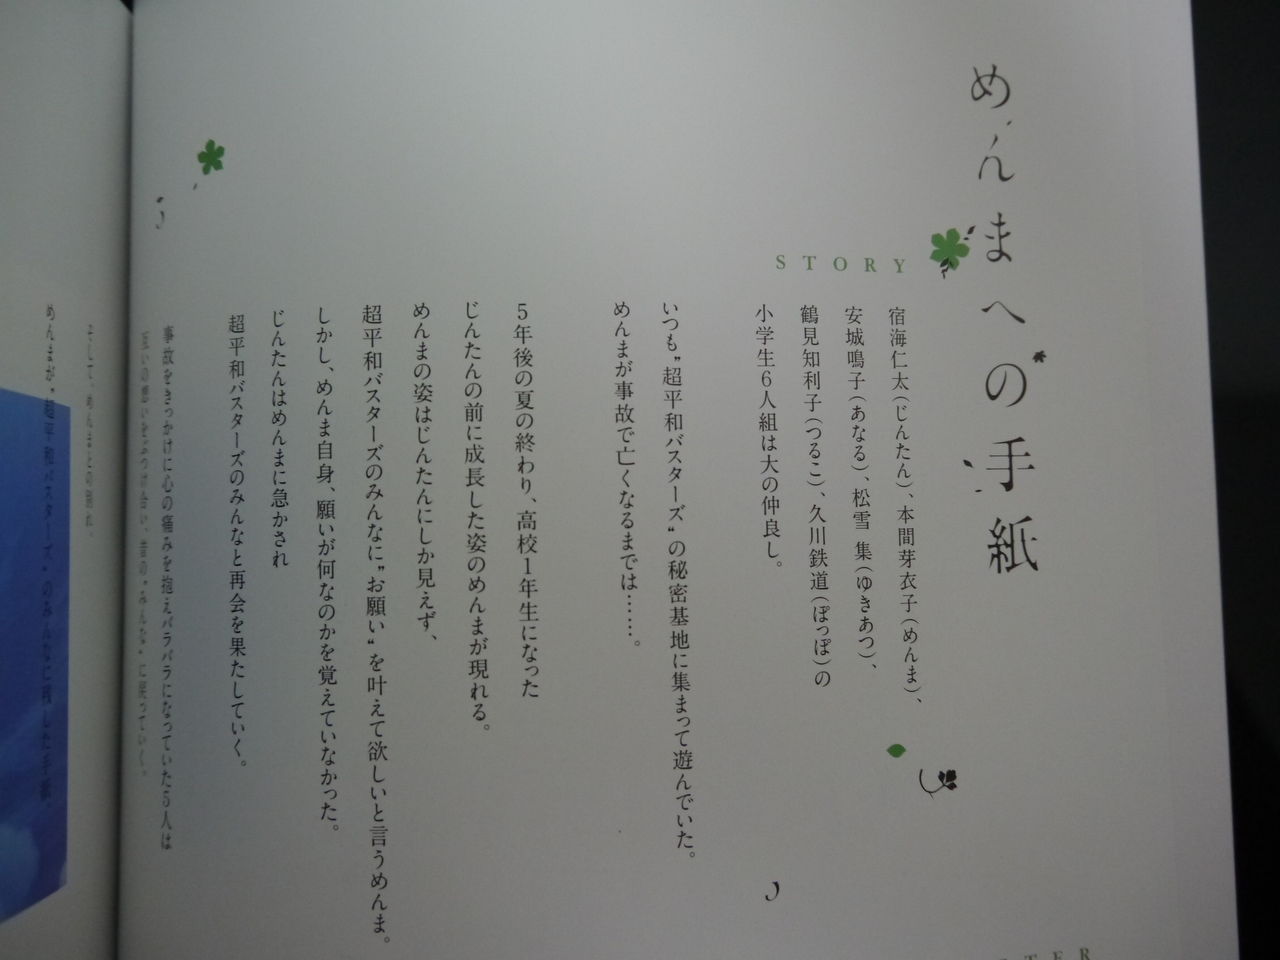 めんまへの手紙
STORY
宿海仁太(じんたん)、本間芽衣子(めんま)、
安城鳴子(あなる)、松雪 集(ゆきあつ)、
鶴見知利子(つるこ)、久川鉄道(ぽっぽ)の
小学生6人組は大の仲良し。
いつも”超平和バスターズ“の秘密基地に集まって遊んでいた。
めんまが事故で亡くなるまでは……。
5年後の夏の終わり、高校1年生になった
じんたんの前に成長した姿のめんまが現れる。
めんまの姿はじんたんにしか見えず、
超平和バスターズのみんなに”お願い“を叶えて欲しいと言うめんま。
しかし、めんま自身、願いが何なのかを覚えていなかった。
じんたんはめんまに急かされ
超平和バスターズのみんなと再会を果たしていく。
事故をきっかけに心の痛みを抱えバラバラになっていた5人は
互いの想いをぶつけ合い、昔の”みんな“に戻っていく。
そして、めんまとの別れ。
めんまが”超平和バスターズ“のみんなに残した手紙